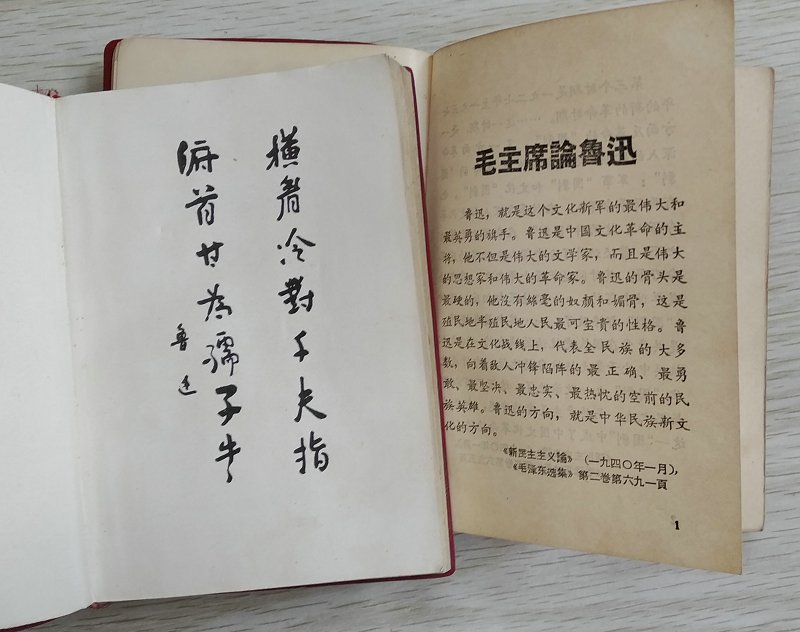 橫眉冷對千夫指
俯首甘為孺子牛
魯迅
毛主席論魯迅
鲁迅，就是这个文化新军的最伟大和
最英勇的旗手。鲁迅是中国文化革命的主
将，他不但是伟大的文学家，而且是伟大
的思想家和伟大的革命家。鲁迅的骨头是
最硬的，他沒有絲毫的奴顏和媚骨，这是
殖民地半殖民地人民最可宝貴的性格。鲁
迅是在文化战线上，代表全民族的大多
数，向着敌人冲锋陷阵的最正确、最勇
敢、最坚决、最忠实、最热忱的空前的民
族英雄。鲁迅的方向，就是中华民族新文
化的方向。
《新民主主义論》（一九四〇年一月），
《毛泽东选集》第二卷第六九一頁
1